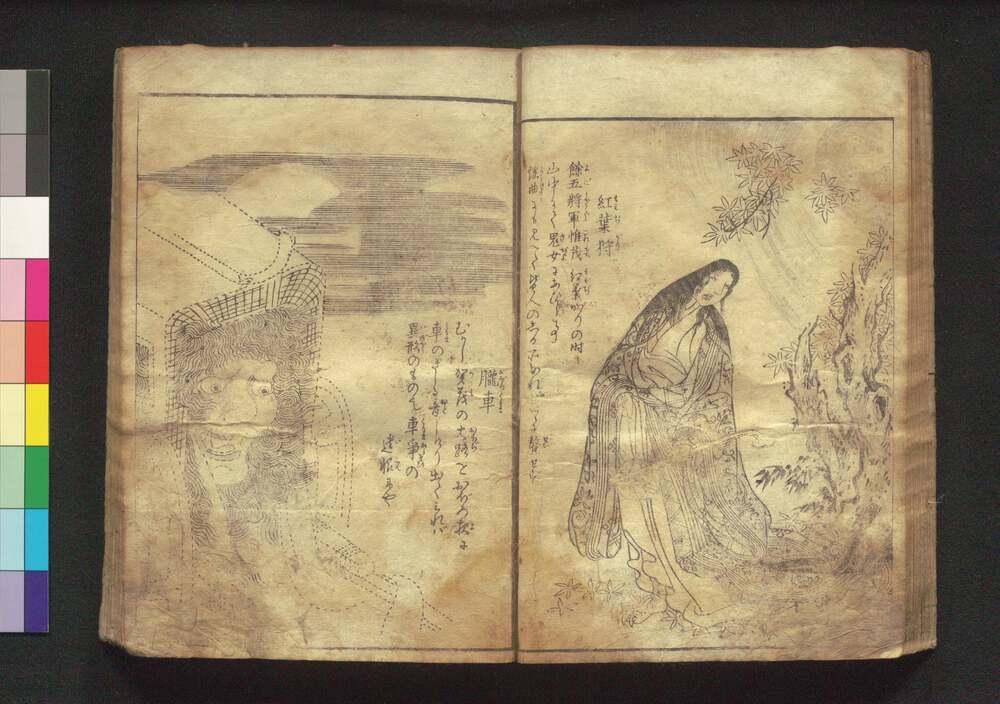 紅葉狩
餘五將軍惟茂紅葉がりの時
山中にて鬼女にあひし事
謡曲にも見へて皆人のしる所なればこゝに贅せず
朧車
むかし賀茂の大路をおぼろ夜に
車のきしる音しけり出てみれば
異形のもの也車争の
遺恨にや